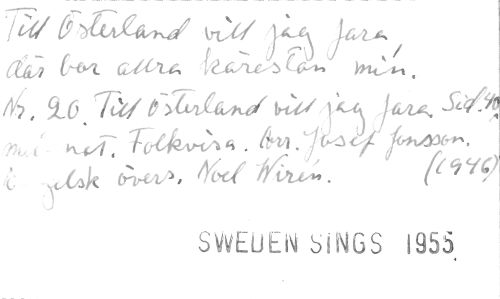 Till Österland vill jag fara
där bor allra kärestan min.
Nr. 20. Till Österland vill jag fara. Sid. 40
med not. Folkvisa. Arr. Josef Jonsson.
Engelsk övers. Noel Wirén. (1946)
SWEDEN SINGS 1955.